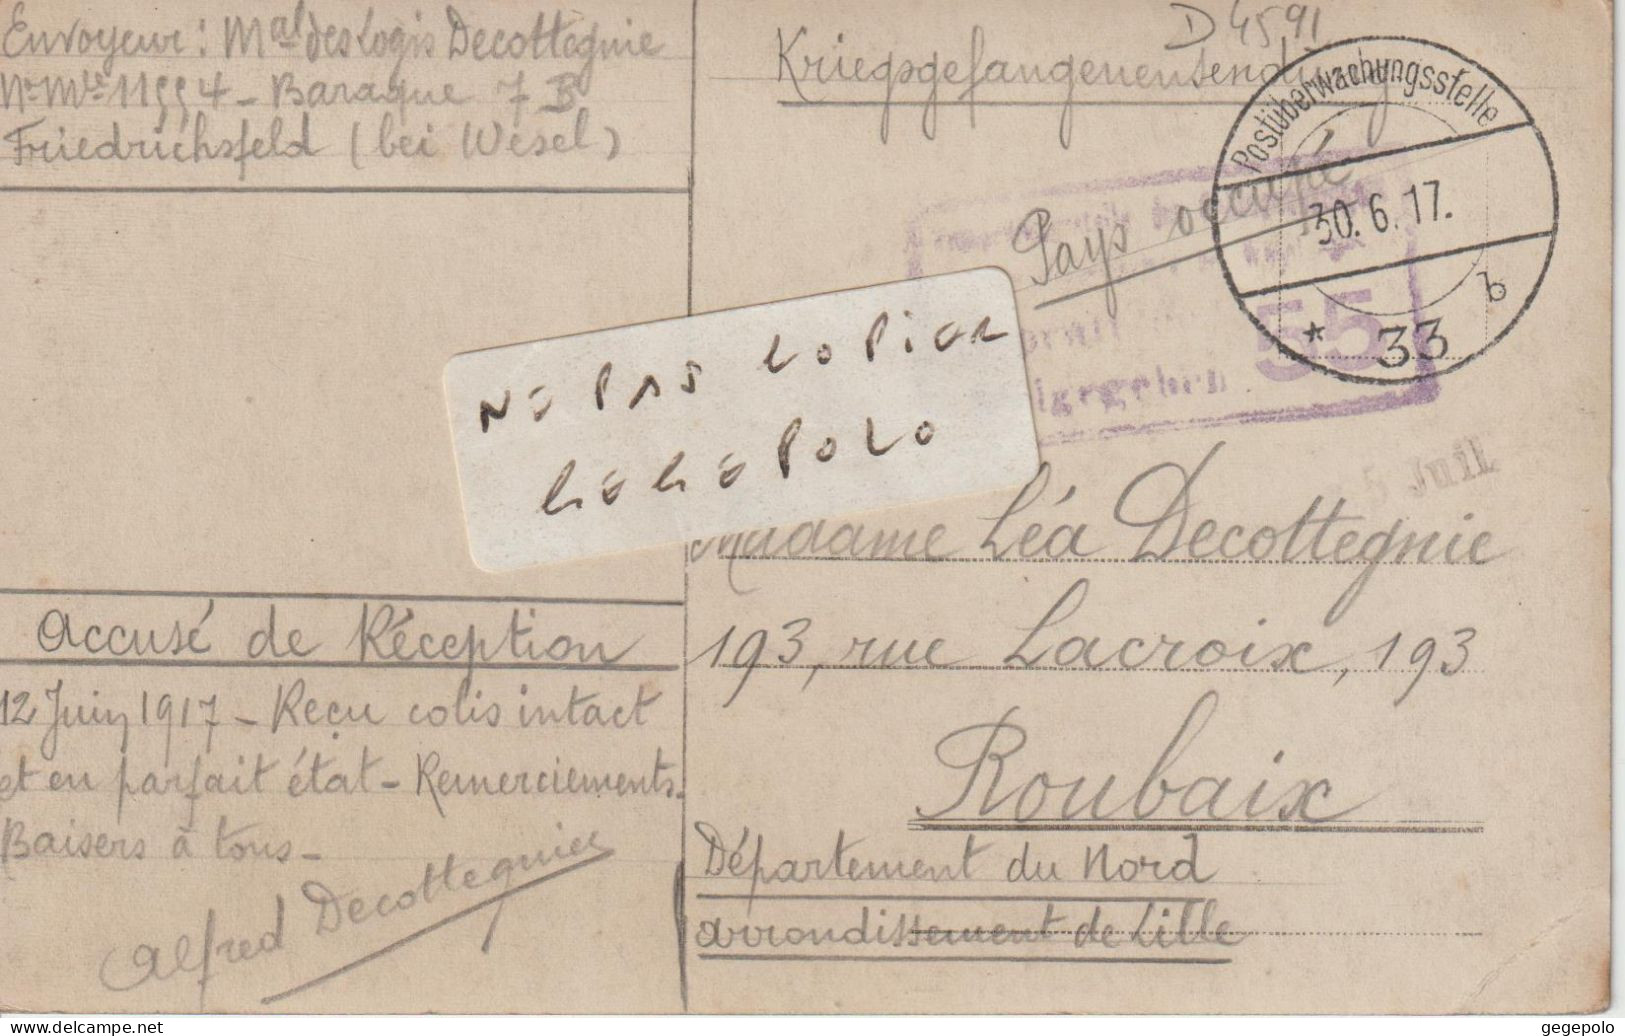 Envoyeur : Mal des Logis Decottegnie
Baraque 7 B
Friedrichsfeld (bei Wesel)
D 4591
Kriegsgefangenensendung
Pays occupé
Postüberwachungsstelle
30. 6. 17.
b
* 33
55
NE PAS COPIER
GEGEPOLO
5 Juil.
Madame Léa Decottegnie
193, rue Lacroix, 193
Roubaix
Département du Nord
arrondissement de Lille
Accusé de Réception
12 Juin 1917 - Reçu colis intact
et en parfait état - Remerciements.
Baisers à tous -
Alfred Decottegnie
delcampe.net
gegepolo